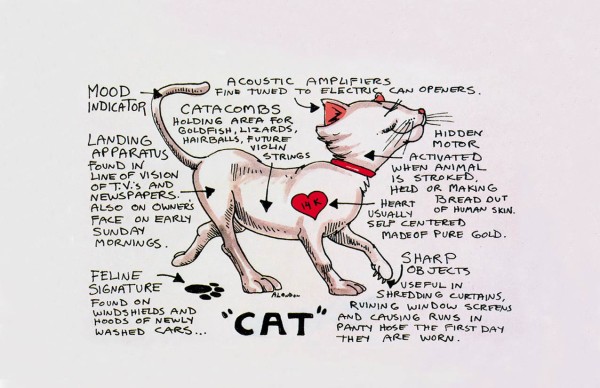 MOOD
INDICATOR
ACOUSTIC AMPLIFIERS
FINE TUNED TO ELECTRIC CAN OPENERS.
CATACOMBS
HOLDING AREA FOR
GOLDFISH, LIZARDS,
HAIRBALLS, FUTURE
VIOLIN
STRINGS
HIDDEN
MOTOR
ACTIVATED
WHEN ANIMAL
IS STROKED,
HELD OR MAKING
BREAD OUT
OF HUMAN SKIN.
LANDING
APPARATUS
FOUND IN
LINE OF VISION
OF T.V.'s AND
NEWSPAPERS.
ALSO ON OWNER'S
FACE ON EARLY
SUNDAY
MORNINGS.
14 K
HEART
USUALLY
SELF CENTERED
MADE OF PURE GOLD.
FELINE
SIGNATURE
FOUND ON
WINDSHIELDS AND
HOODS OF NEWLY
WASHED CARS...
SHARP
OBJECTS
USEFUL IN
SHREDDING CURTAINS,
RUINING WINDOW SCREENS
AND CAUSING RUNS IN
PANTY HOSE THE FIRST DAY
THEY ARE WORN.
"CAT"